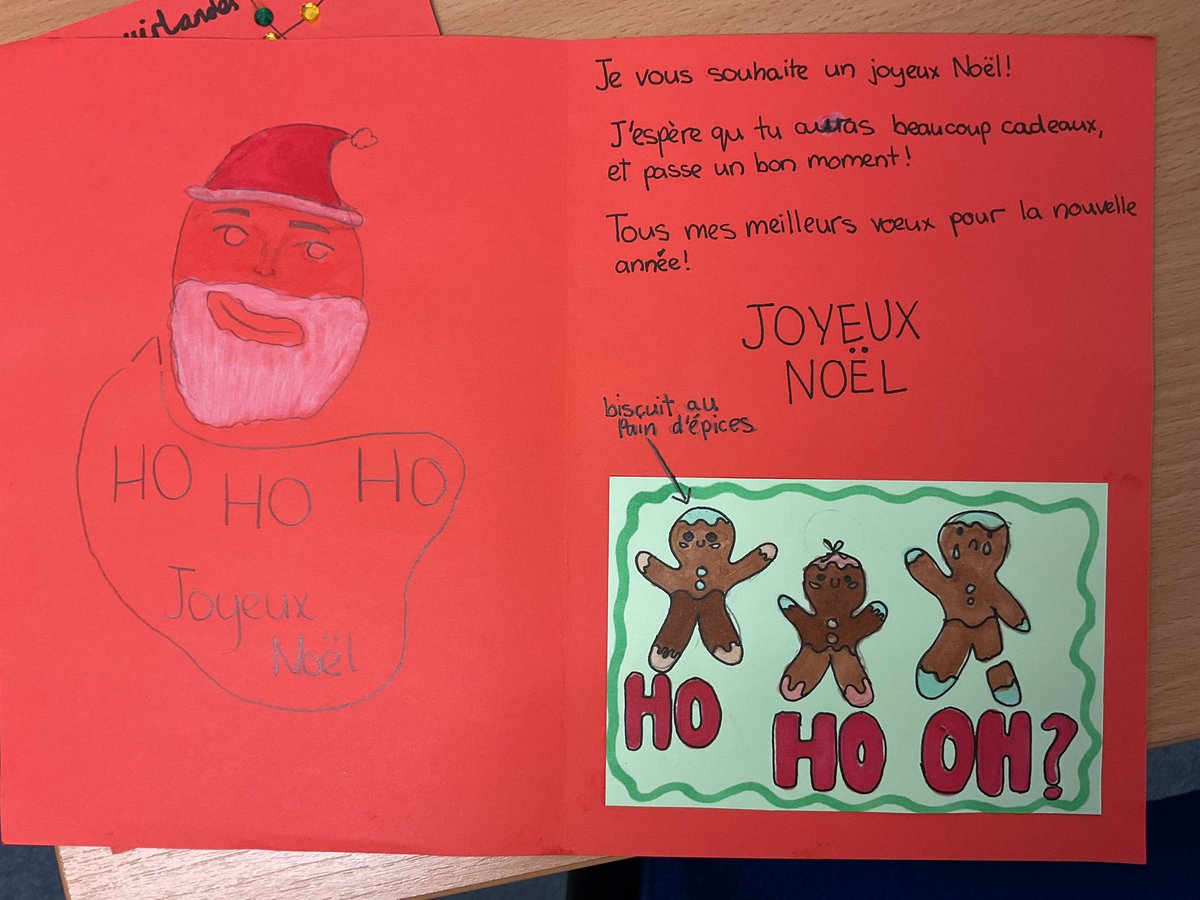 HO HO HO
Joyeux
Noël
Je vous souhaite un joyeux Noël!
J'espère qu tu auras beaucoup cadeaux,
et passe un bon moment!
Tous mes meilleurs vœux pour la nouvelle
année!
JOYEUX
NOËL
biscuit au
Pain d'épices
HO
HO OH?